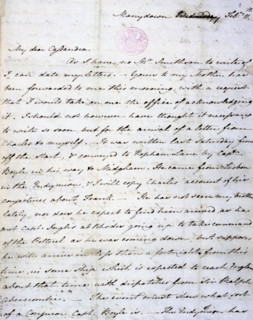 Manydown Wednesday Feb: 11
My dear Cassandra
As I have no Mr. Smithson to write of
I can date my letters. Yours to my Mother has
been forwarded to me this morning, with a request
that I would take on me the office of acknowledging
it. I should not however have thought it necessary
to write so soon, but for the arrival of a letter from
Charles to myself. It was written last Saturday from
off the Start, & conveyed to Popham Lane by Capt.
Boyle in his way to Midgham. He came from Lisbon
in the Endymion, & I will copy Charles' account of his
conjectures about Frank. He has not seen my brother
lately, nor does he expect to find him arrived, as he
met Capt. Inglis at Rhodes going up to take command
of the Petterel as he was coming down, but supposes
he will arrive in less than a fortnight from this
time, in some Ship which is expected to reach England
about that time with dispatches from Sir Ralph
Abercrombie. The event must shew what sort
of a Conjuror Capt. Boyle is. The Endymion has